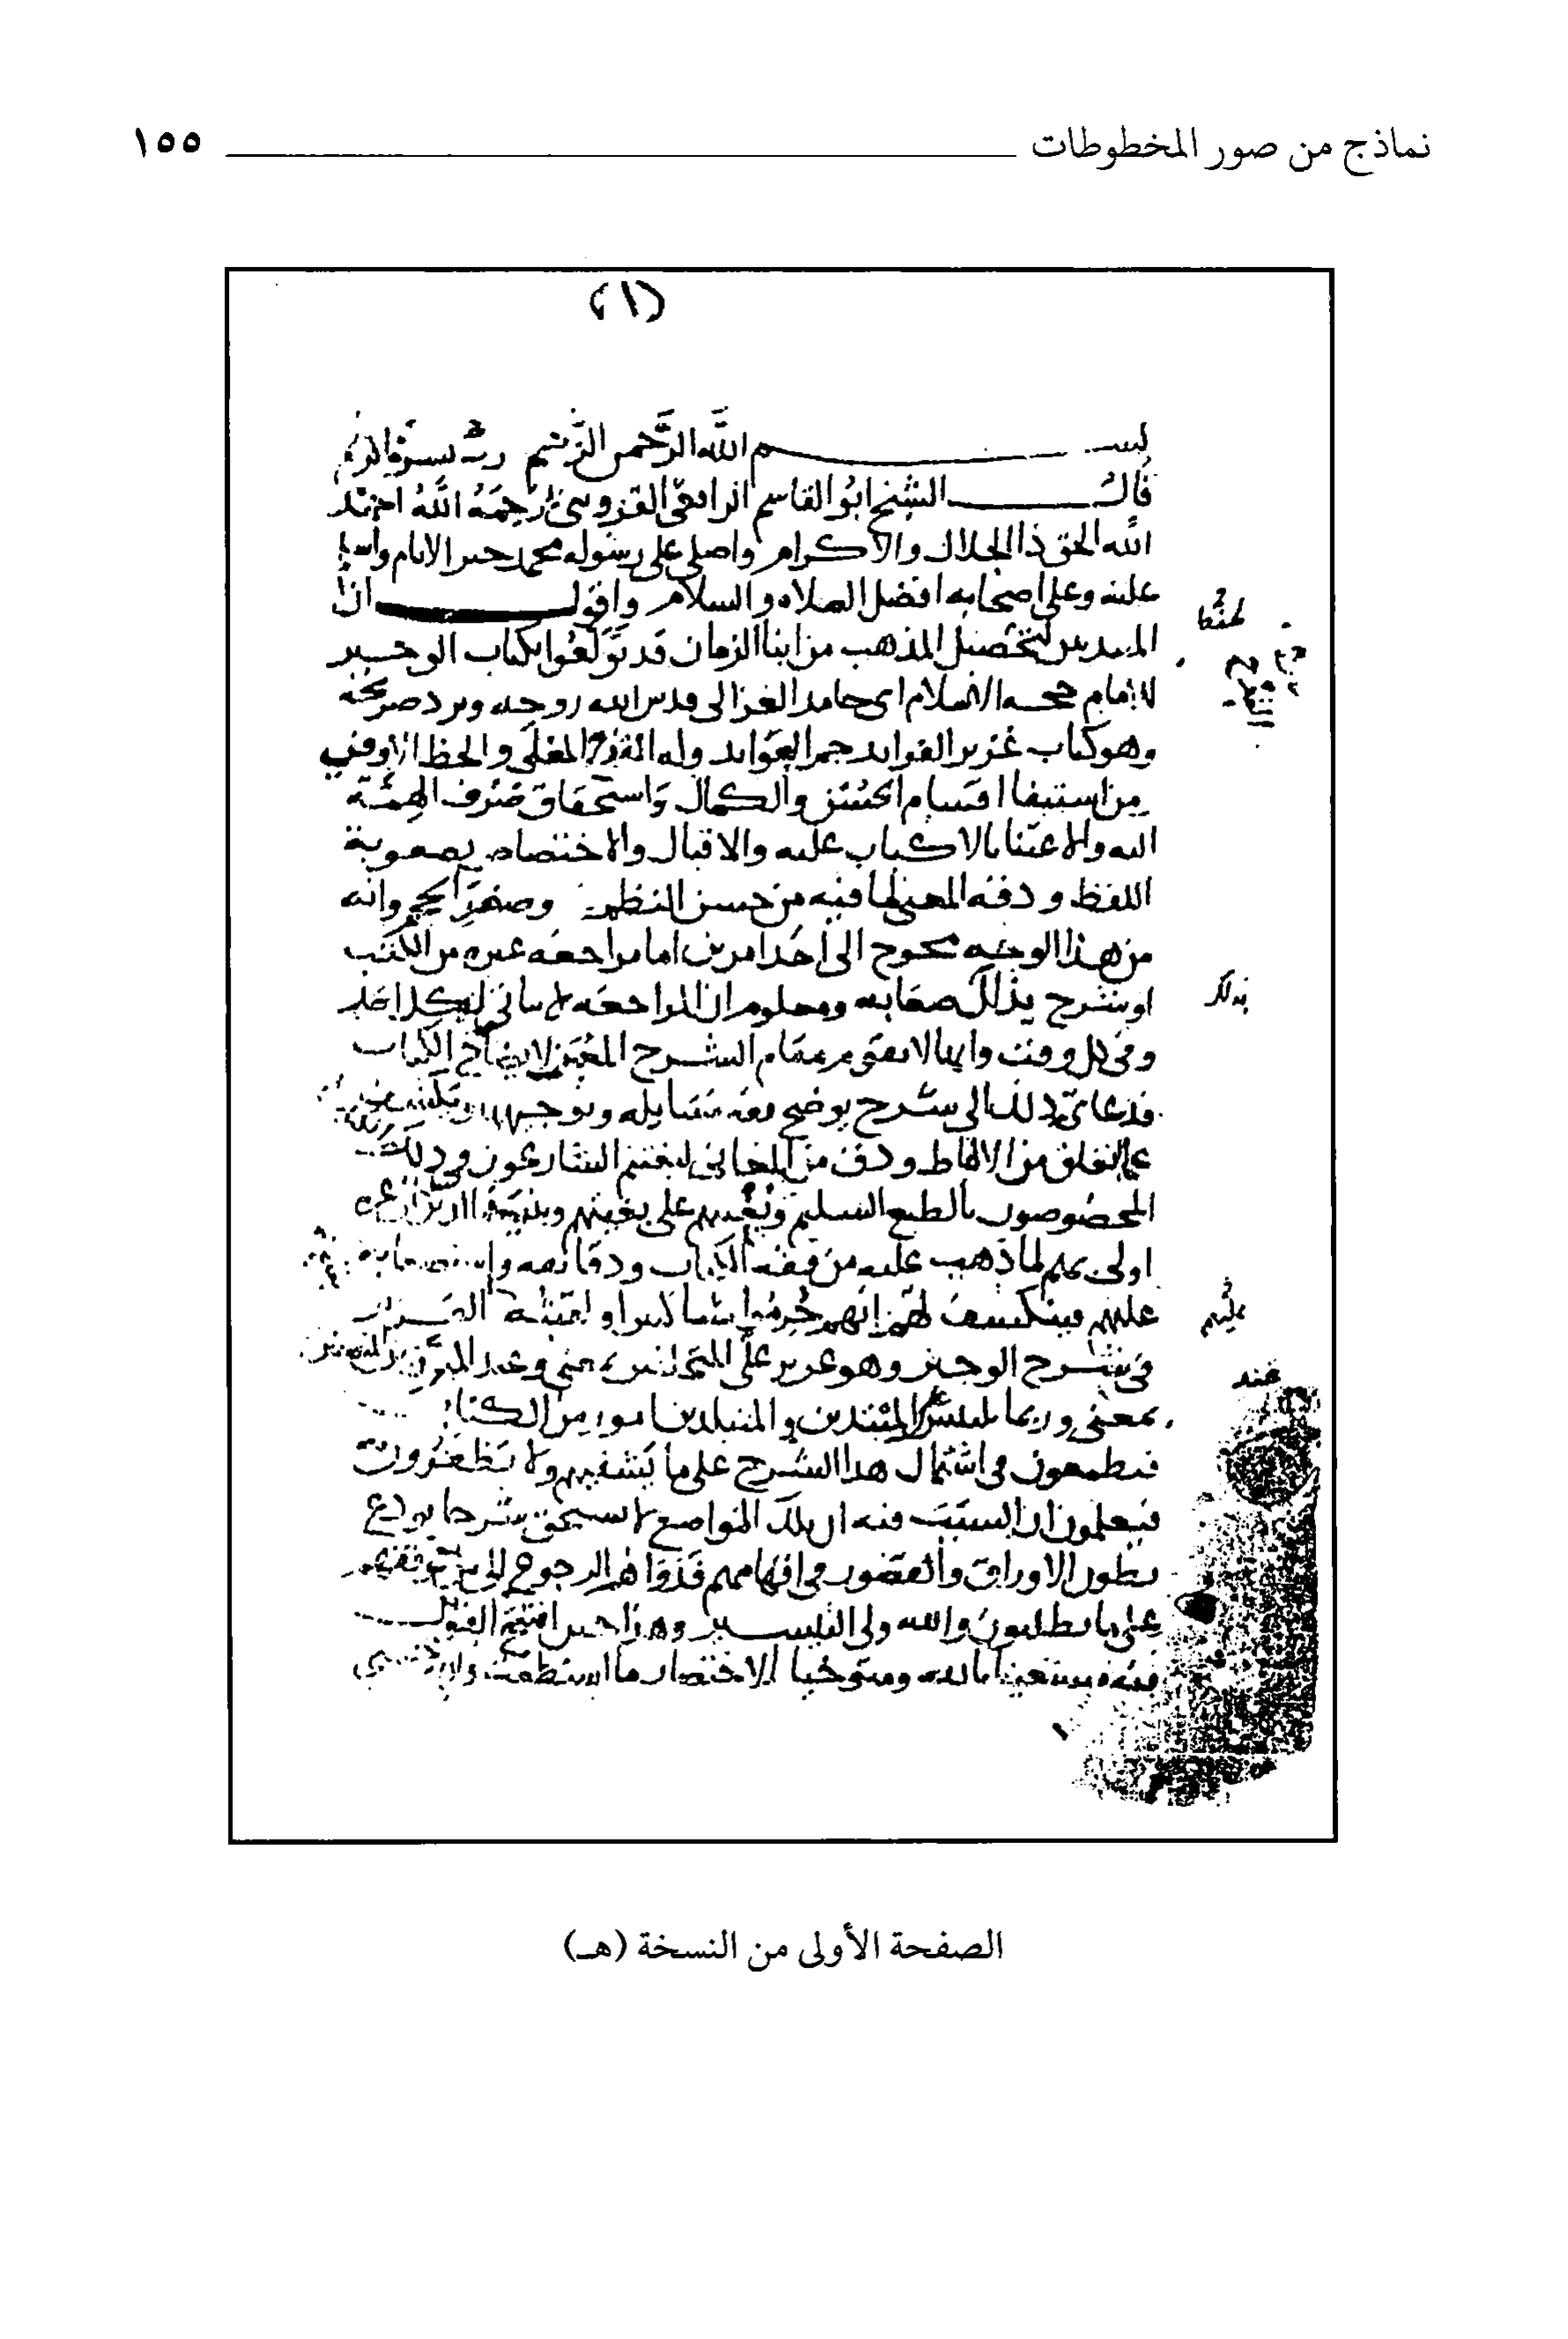 نماذج من صور المخطوطات ١٥٥
(١)
بسم الله الرحمن الرحيم رب يسر
قال الشيخ ابو القاسم الرافعي القزويني رحمه الله احمد
الله الحق ذا الجلال والاكرام واصلي على رسوله محمد خير الانام واسلم
عليه وعلى اصحابه افضل الصلاه والسلام واقول ان
المبتدين لتحصيل المذهب من ابنا الزمان قد تولعوا بكتاب الوجيز
للامام حجه الاسلام ابي حامد الغزالي قدس الله روحه وبرد ضريحه
وهو كتاب غزير الفوايد جم العوايد وله القدح المعلى والحظ الاوفى
من استيفا اقسام الحسن والكمال واستحقاق صرف الهمة
اليه والاعتنا بالاكباب عليه والاقبال والاختصاص بصعوبة
اللفظ ودقه المعنى لما فيه من حسن النظم وصغر الحجم وانه
من هذا الوجه محوج الى احد امرين اما مراجعه غيره من الكتب
او شرح يذلل صعابه ومعلوم ان المراجعه لا تتاتى لكل احد
وفي كل وقت وانها لا تقوم مقام الشرح المعين لايضاح الكتاب
فدعاني ذلك الى شرح يوضح فقه مسايله وتوجيهها ويكشف
عما انغلق من الالفاظ ودق من المعاني ليغتنم الشارعون في ذلك
المخصوصون بالطبع السليم ويعينهم على بغيتهم ويتنبه الذين غيره
اولى بهم لما ذهب عليه من فقه الكتاب ودقايقه واستصعابه
عليهم فينكشف لهم انهم حرموا شيا كثيرا ولقبته العزيز
في شرح الوجيز وهو عزيز على المتخلفين بمعنى وعند المبرزين المنصفين
بمعنى وربما تلتبس على المبتدين والمتبلدين امور من الكتاب
فيطمعون في اشتمال هذا الشرح على ما يشفيهم ولا يظفرون
فيعلمون ان السبب فيه ان تلك المواضع لا تستحق شرحا يودع
بطون الاوراق والقصور في افهامهم فدواهم الرجوع الى من يوقفهم
على ما يطلبون والله ولي التيسير وهذا حين افتتح القول
فيه مستعينا بالله ومتوخيا للاختصار ما استطعت
بذلك
عليهم
عند
الصفحة الأولى من النسخة (هـ)